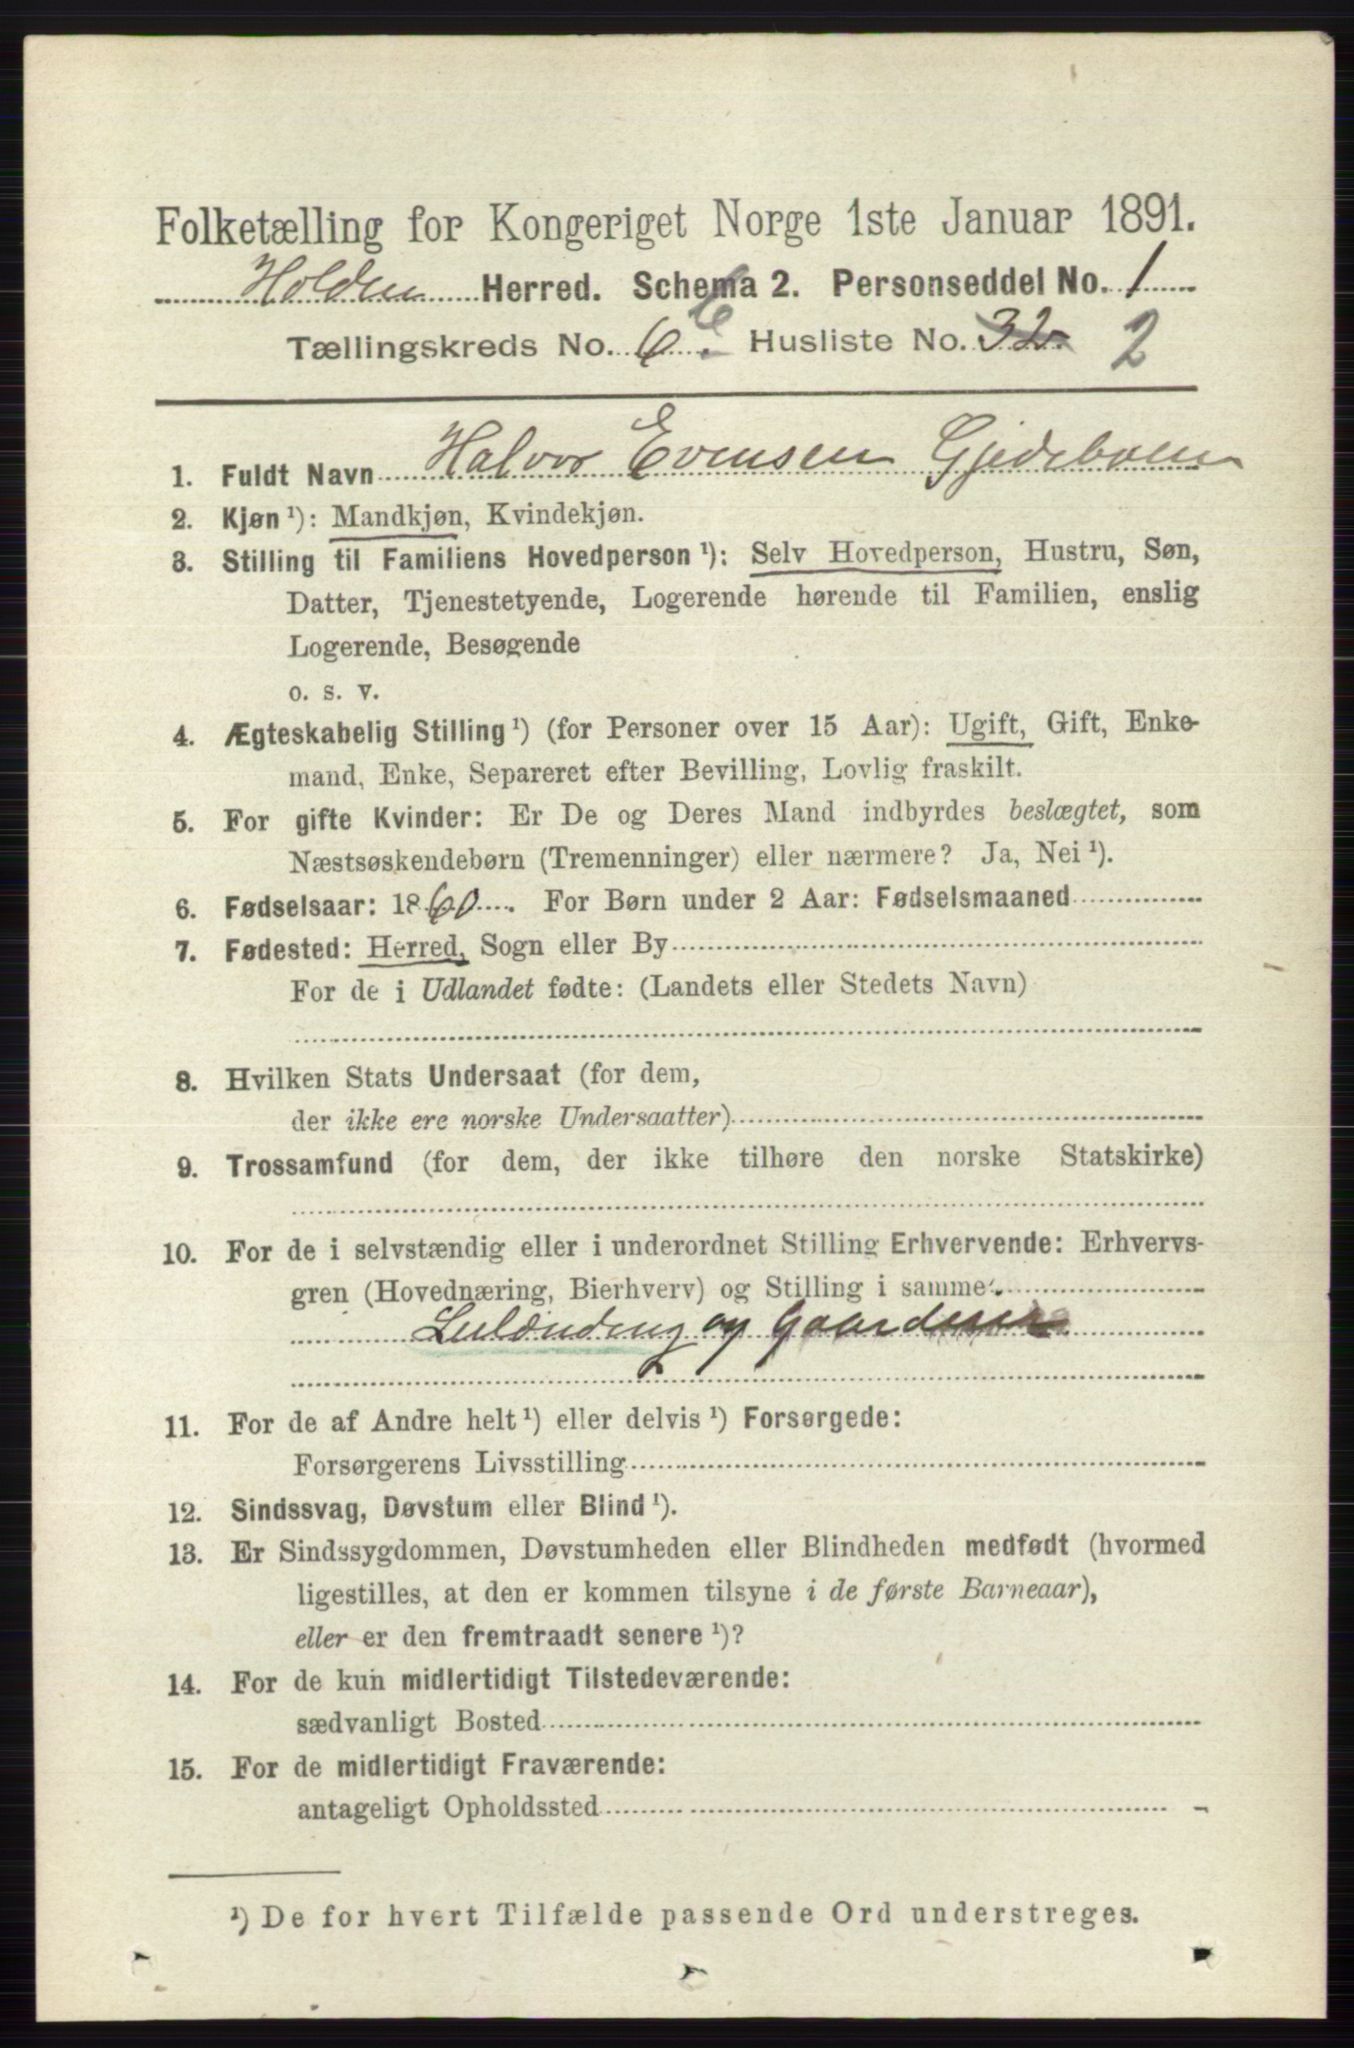 Folketælling for Kongeriget Norge 1ste Januar 1891.
Holden Herred. Schema 2. Personseddel No. 1
Tællingskreds No. 6 Husliste No. 32 2
1. Fuldt Navn Halvor Evensen Gjedeboen
2. Kjøn ¹): Mandkjøn, Kvindekjøn.
3. Stilling til Familiens Hovedperson ¹): Selv Hovedperson, Hustru, Søn,
Datter, Tjenestetyende, Logerende hørende til Familien, enslig
Logerende, Besøgende
o. s. v.
4. Ægteskabelig Stilling ¹) (for Personer over 15 Aar): Ugift, Gift, Enke-
mand, Enke, Separeret efter Bevilling, Lovlig fraskilt.
5. For gifte Kvinder: Er De og Deres Mand indbyrdes beslægtet, som
Næstsøskendebørn (Tremenninger) eller nærmere? Ja, Nei ¹).
6. Fødselsaar: 1860. For Børn under 2 Aar: Fødselsmaaned
7. Fødested: Herred, Sogn eller By
For de i Udlandet fødte: (Landets eller Stedets Navn)
8. Hvilken Stats Undersaat (for dem,
der ikke ere norske Undersaatter)
9. Trossamfund (for dem, der ikke tilhøre den norske Statskirke)
10. For de i selvstændig eller i underordnet Stilling Erhvervende: Erhvervs-
gren (Hovednæring, Bierhverv) og Stilling i samme
Leilænding og
11. For de af Andre helt ¹) eller delvis ¹) Forsørgede:
Forsørgerens Livsstilling
12. Sindssvag, Døvstum eller Blind ¹).
13. Er Sindssygdommen, Døvstumheden eller Blindheden medfødt (hvormed
ligestilles, at den er kommen tilsyne i de første Barneaar),
eller er den fremtraadt senere ¹)?
14. For de kun midlertidigt Tilstedeværende:
sædvanligt Bosted
15. For de midlertidigt Fraværende:
antageligt Opholdssted
¹) De for hvert Tilfælde passende Ord understreges.